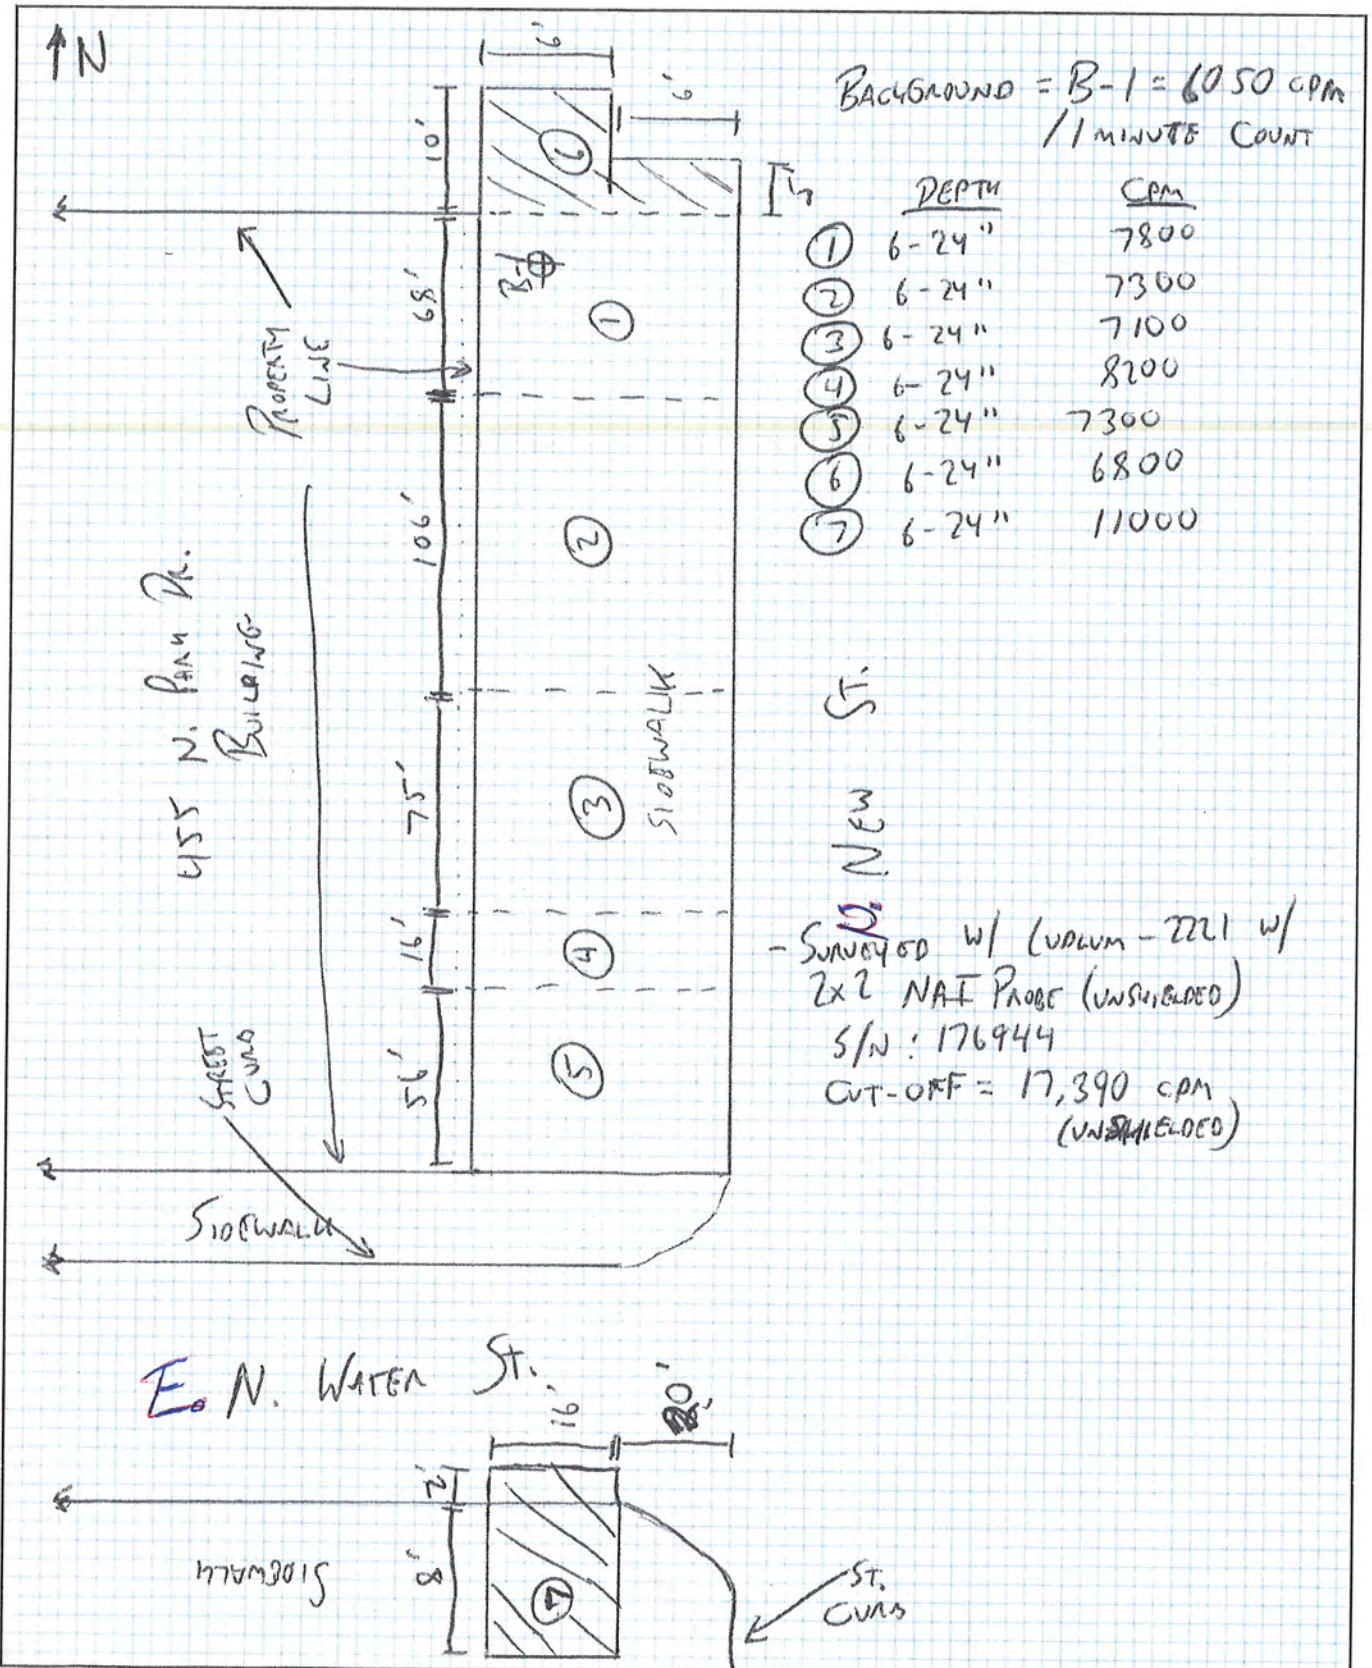 N
6'
6'
10'
BACKGROUND = B-1 = 6050 CPM
/1 MINUTE COUNT
DEPTH CPM
① 6-24" 7800
② 6-24" 7300
③ 6-24" 7100
④ 6-24" 8200
⑤ 6-24" 7300
⑥ 6-24" 6800
⑦ 6-24" 11000
⑥
B-1
①
68'
PROPERTY
LINE
②
106'
455 N. PARK DR.
BUILDING
③
75'
SIDEWALK
N. NEW ST.
④
16'
⑤
56'
- SURVEYED W/ LUDLUM-2221 W/
2x2 NAI PROBE (UNSHIELDED)
S/N: 176944
CUT-OFF = 17,390 CPM
(UNSHIELDED)
STREET
CURB
SIDEWALK
E. N. WATER ST.
16'
20'
2'
8'
⑦
SIDEWALK
ST.
CURB